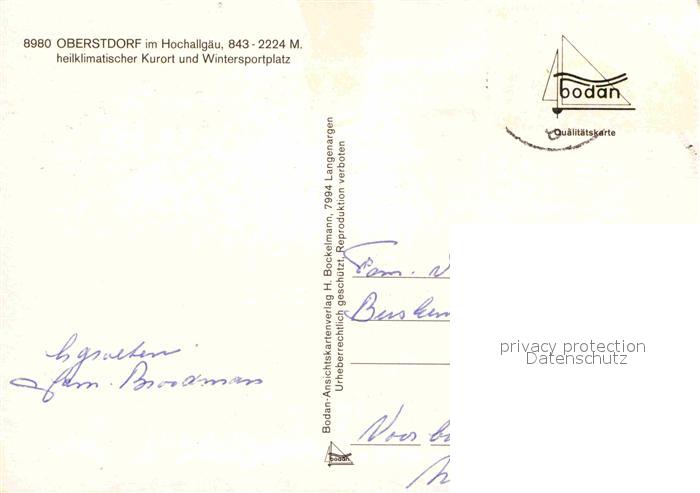 8980 OBERSTDORF im Hochallgäu, 843 - 2224 M.
heilklimatischer Kurort und Wintersportplatz
bodan
Qualitätskarte
Bodan-Ansichtskartenverlag H. Bockelmann, 7994 Langenargen
Urheberrechtlich geschützt, Reproduktion verboten
Fam.
groeten
fam. Broodman
privacy protection
Datenschutz
bodan